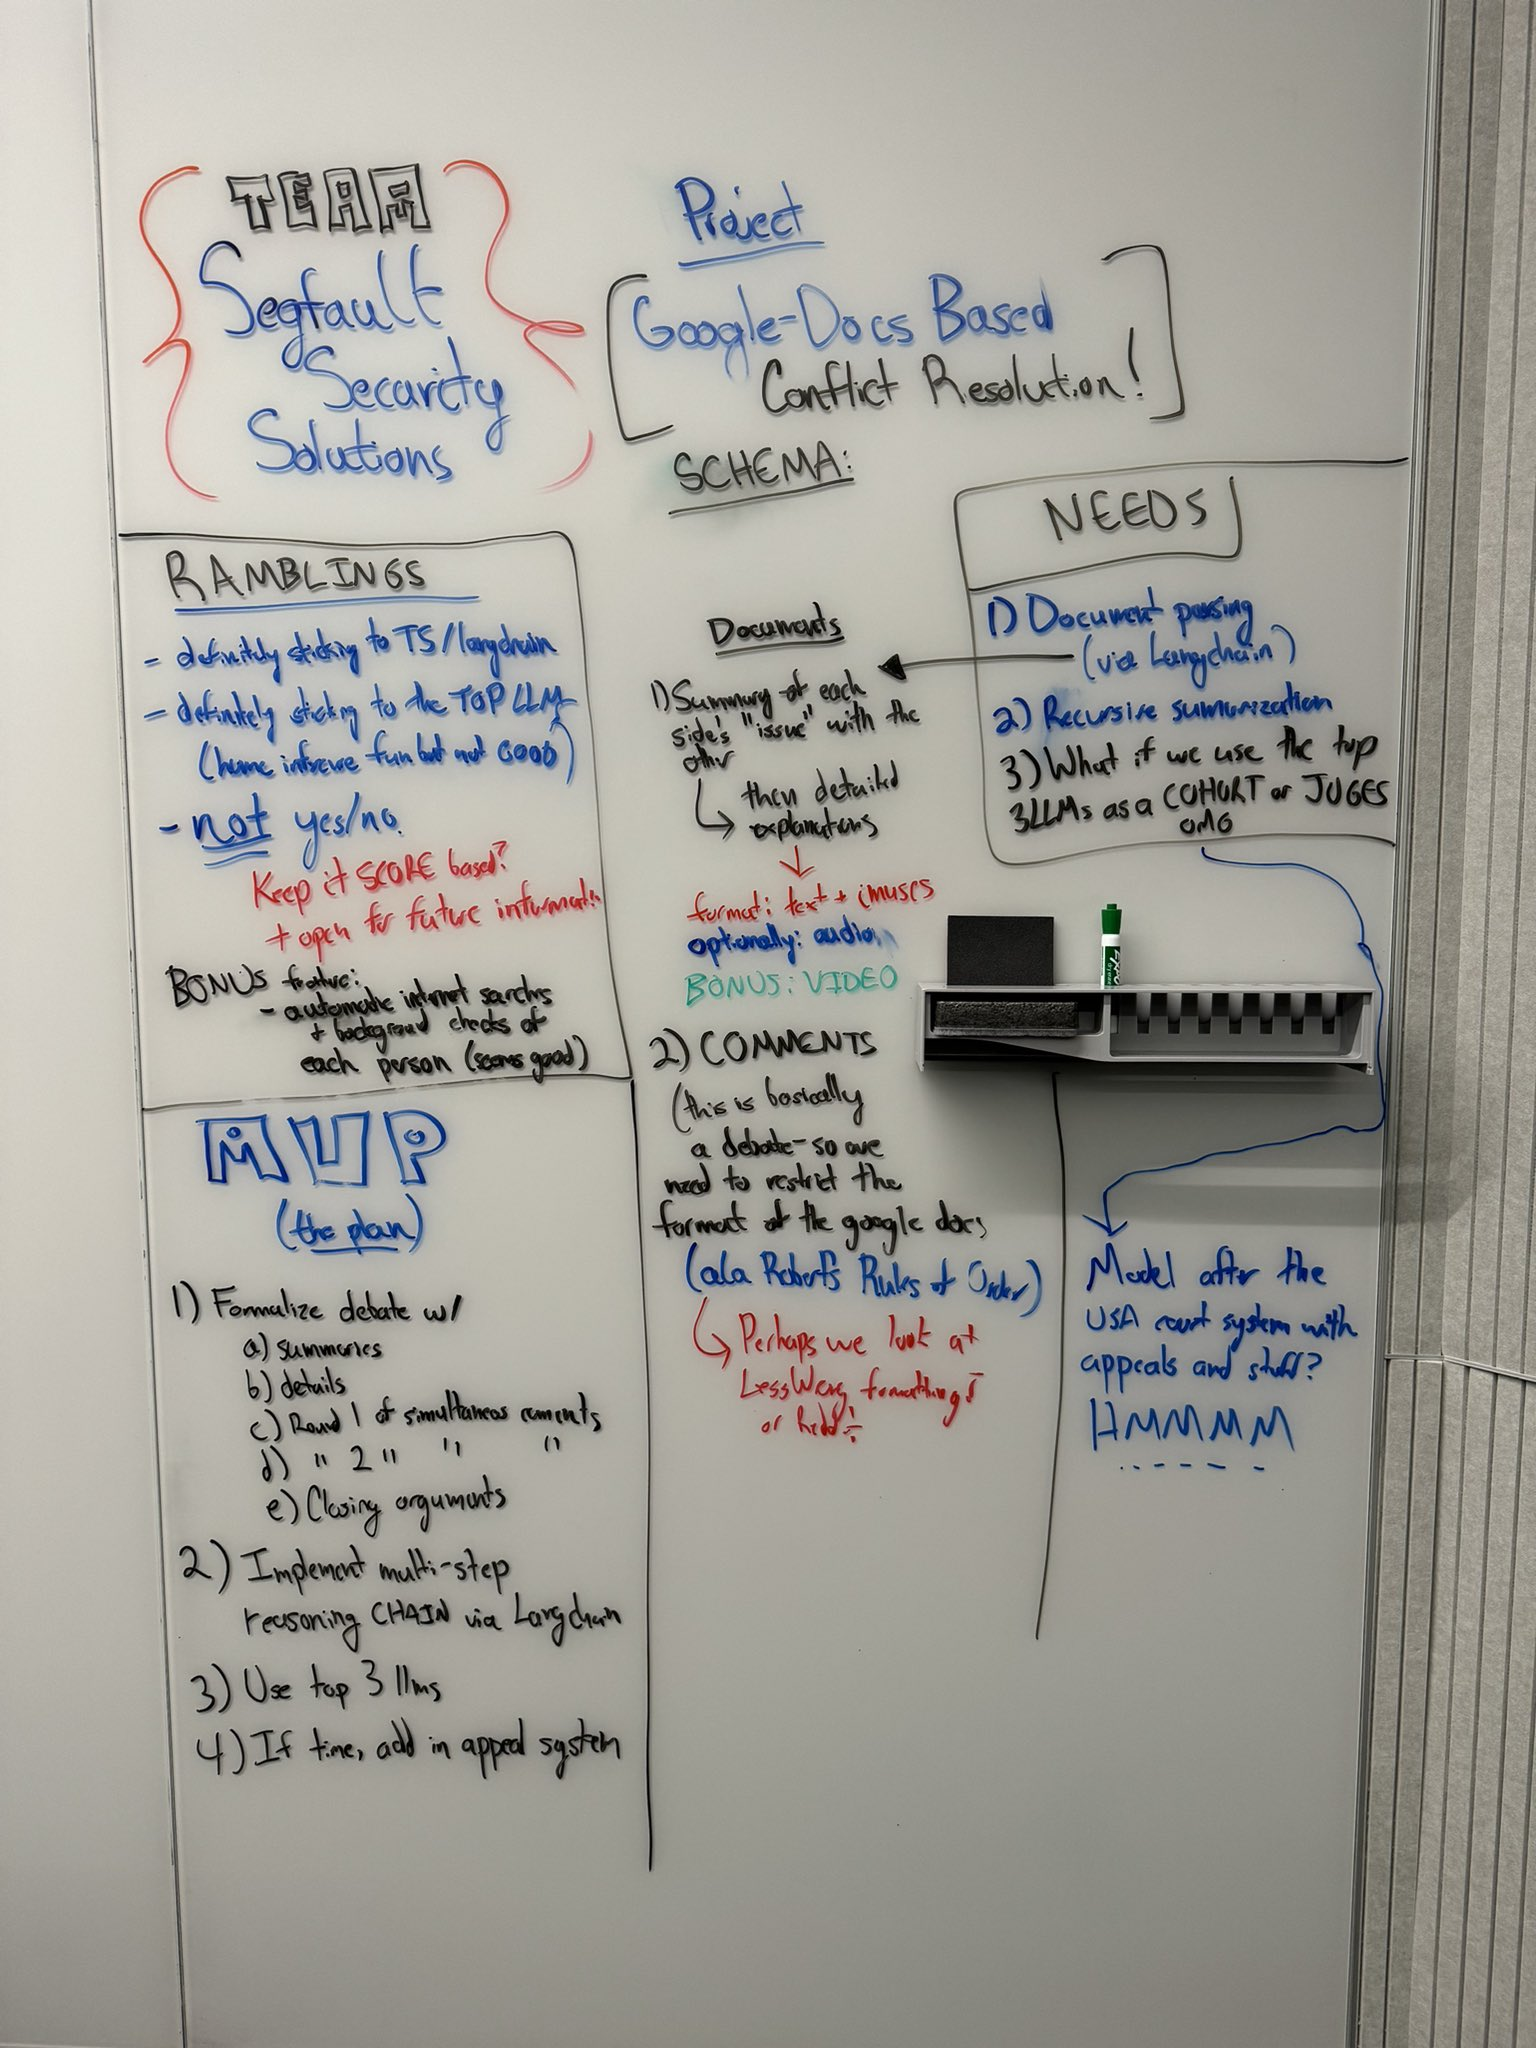 TEAM
Segfault
Security
Solutions
Project
Google-Docs Based
Conflict Resolution!
SCHEMA:
RAMBLINGS
- definitely sticking to TS/langchain
- definitely sticking to the TOP LLM
(home fun but not GOOD)
- not yes/no.
Keep it SCORE based?
+ open for future
BONUS feature:
- automatic internet searches
+ background checks of
each person (seems good)
MVP
(the plan)
1) Formalize debate w/
a) summaries
b) details
c) Round 1 of
d) " 2 " " "
e) Closing arguments
2) Implement multi-step
reasoning CHAIN via Langchain
3) Use top 3 llms
4) If time, add in appeal system
Documents
1) Summary of each
side's "issue" with the
other
then detailed
explanations
format: text +
optionally: audio
BONUS: VIDEO
2) COMMENTS
(this is basically
a debate - so we
need to restrict the
format of the google docs
(ala Robert's Rules of Order)
Perhaps we look at
LessWrong
or
NEEDS
1) Document parsing
(via Langchain)
2) Recursive
3) What if we use the top
3 LLMs as a COHORT of JUGES
OMG
Model after the
USA court system with
appeals and stuff?
HMMMM
EXPO